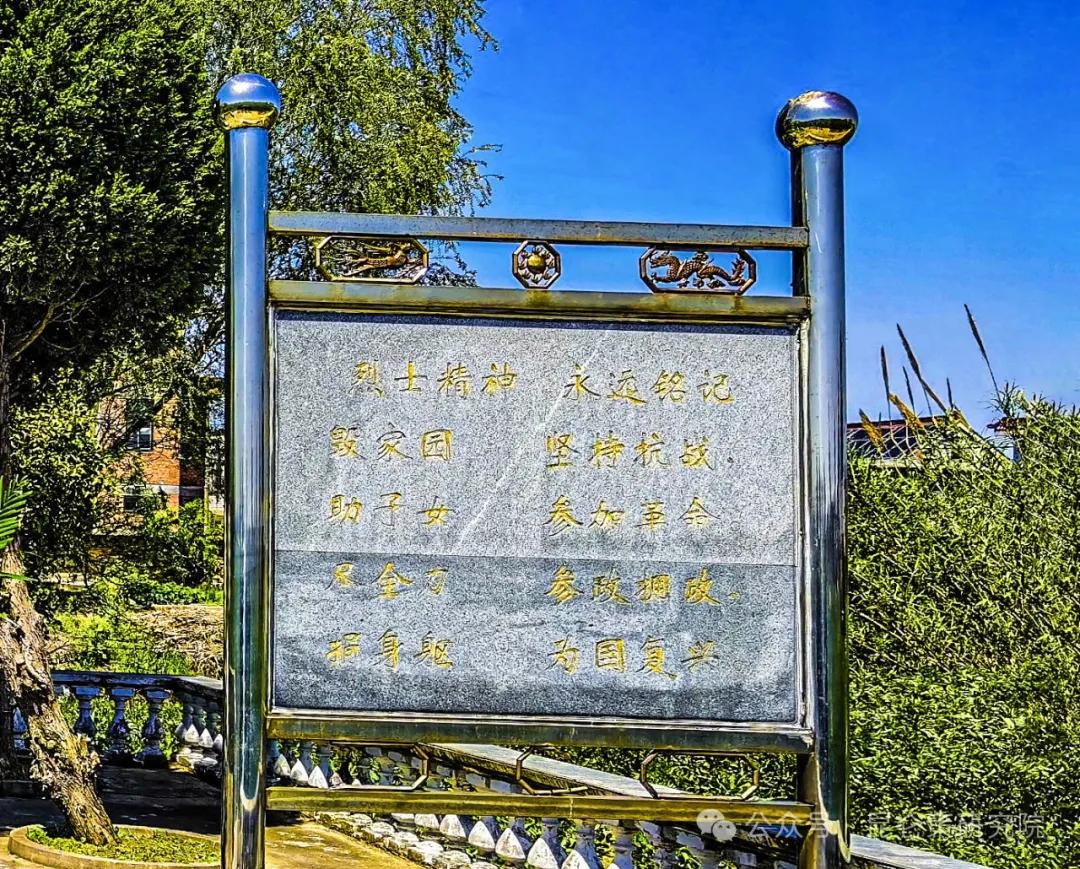 烈士精神 永远铭记
毁家园 坚持抗战
助子女 参加革命
尽全力 参政拥政
捐身躯 为国复兴
公众号·昆仑策研究院